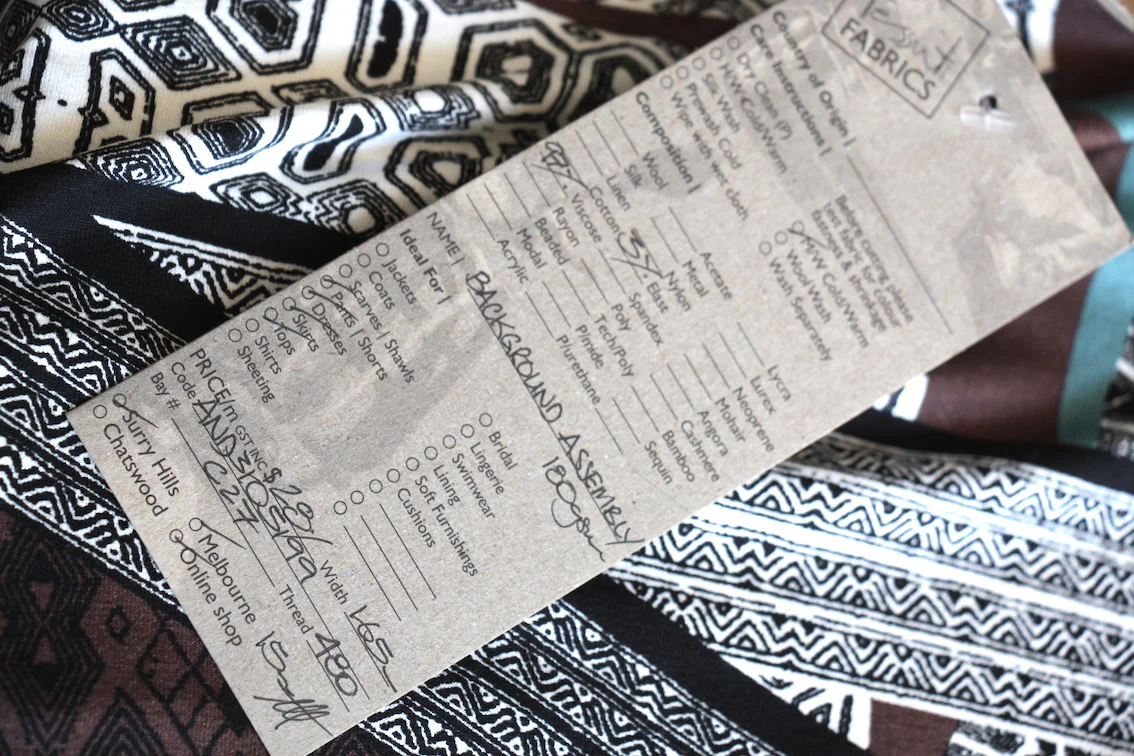 FABRICS
Country of Origin |
Care Instructions |
Dry Clean (P)
H/W Cold/Warm
Silk Wash
Prewash Cold
Wipe with wet cloth
Before cutting please
test fabric for colour
fastness & shrinkage
M/W Cold/Warm
Wool Wash
Wash Separately
Composition |
Wool
Silk
Linen
Cotton
97% Viscose
Rayon
Beaded
Modal
Acrylic
Acetate
Metal
Nylon
3% Elast
Spandex
Poly
Tech/Poly
P/mide
P/urethane
Lycra
Lurex
Neoprene
Mohair
Angora
Cashmere
Bamboo
Sequin
NAME | BACKGROUND ASSEMBLY
180gsm
Ideal For |
Jackets
Coats
Scarves / Shawls
Pants / Shorts
Dresses
Skirts
Tops
Shirts
Sheeting
Bridal
Lingerie
Swimwear
Lining
Soft Furnishings
Cushions
PRICE/m GST INC $20/ Width 165
Code Thread 480
Bay # C27
Surry Hills
Chatswood
Melbourne
Online shop